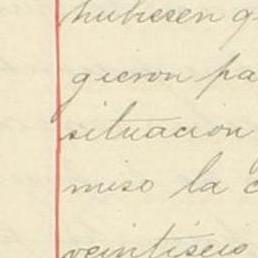 hubiesen q
gieron pa
situacion
miso la c
veintiseis